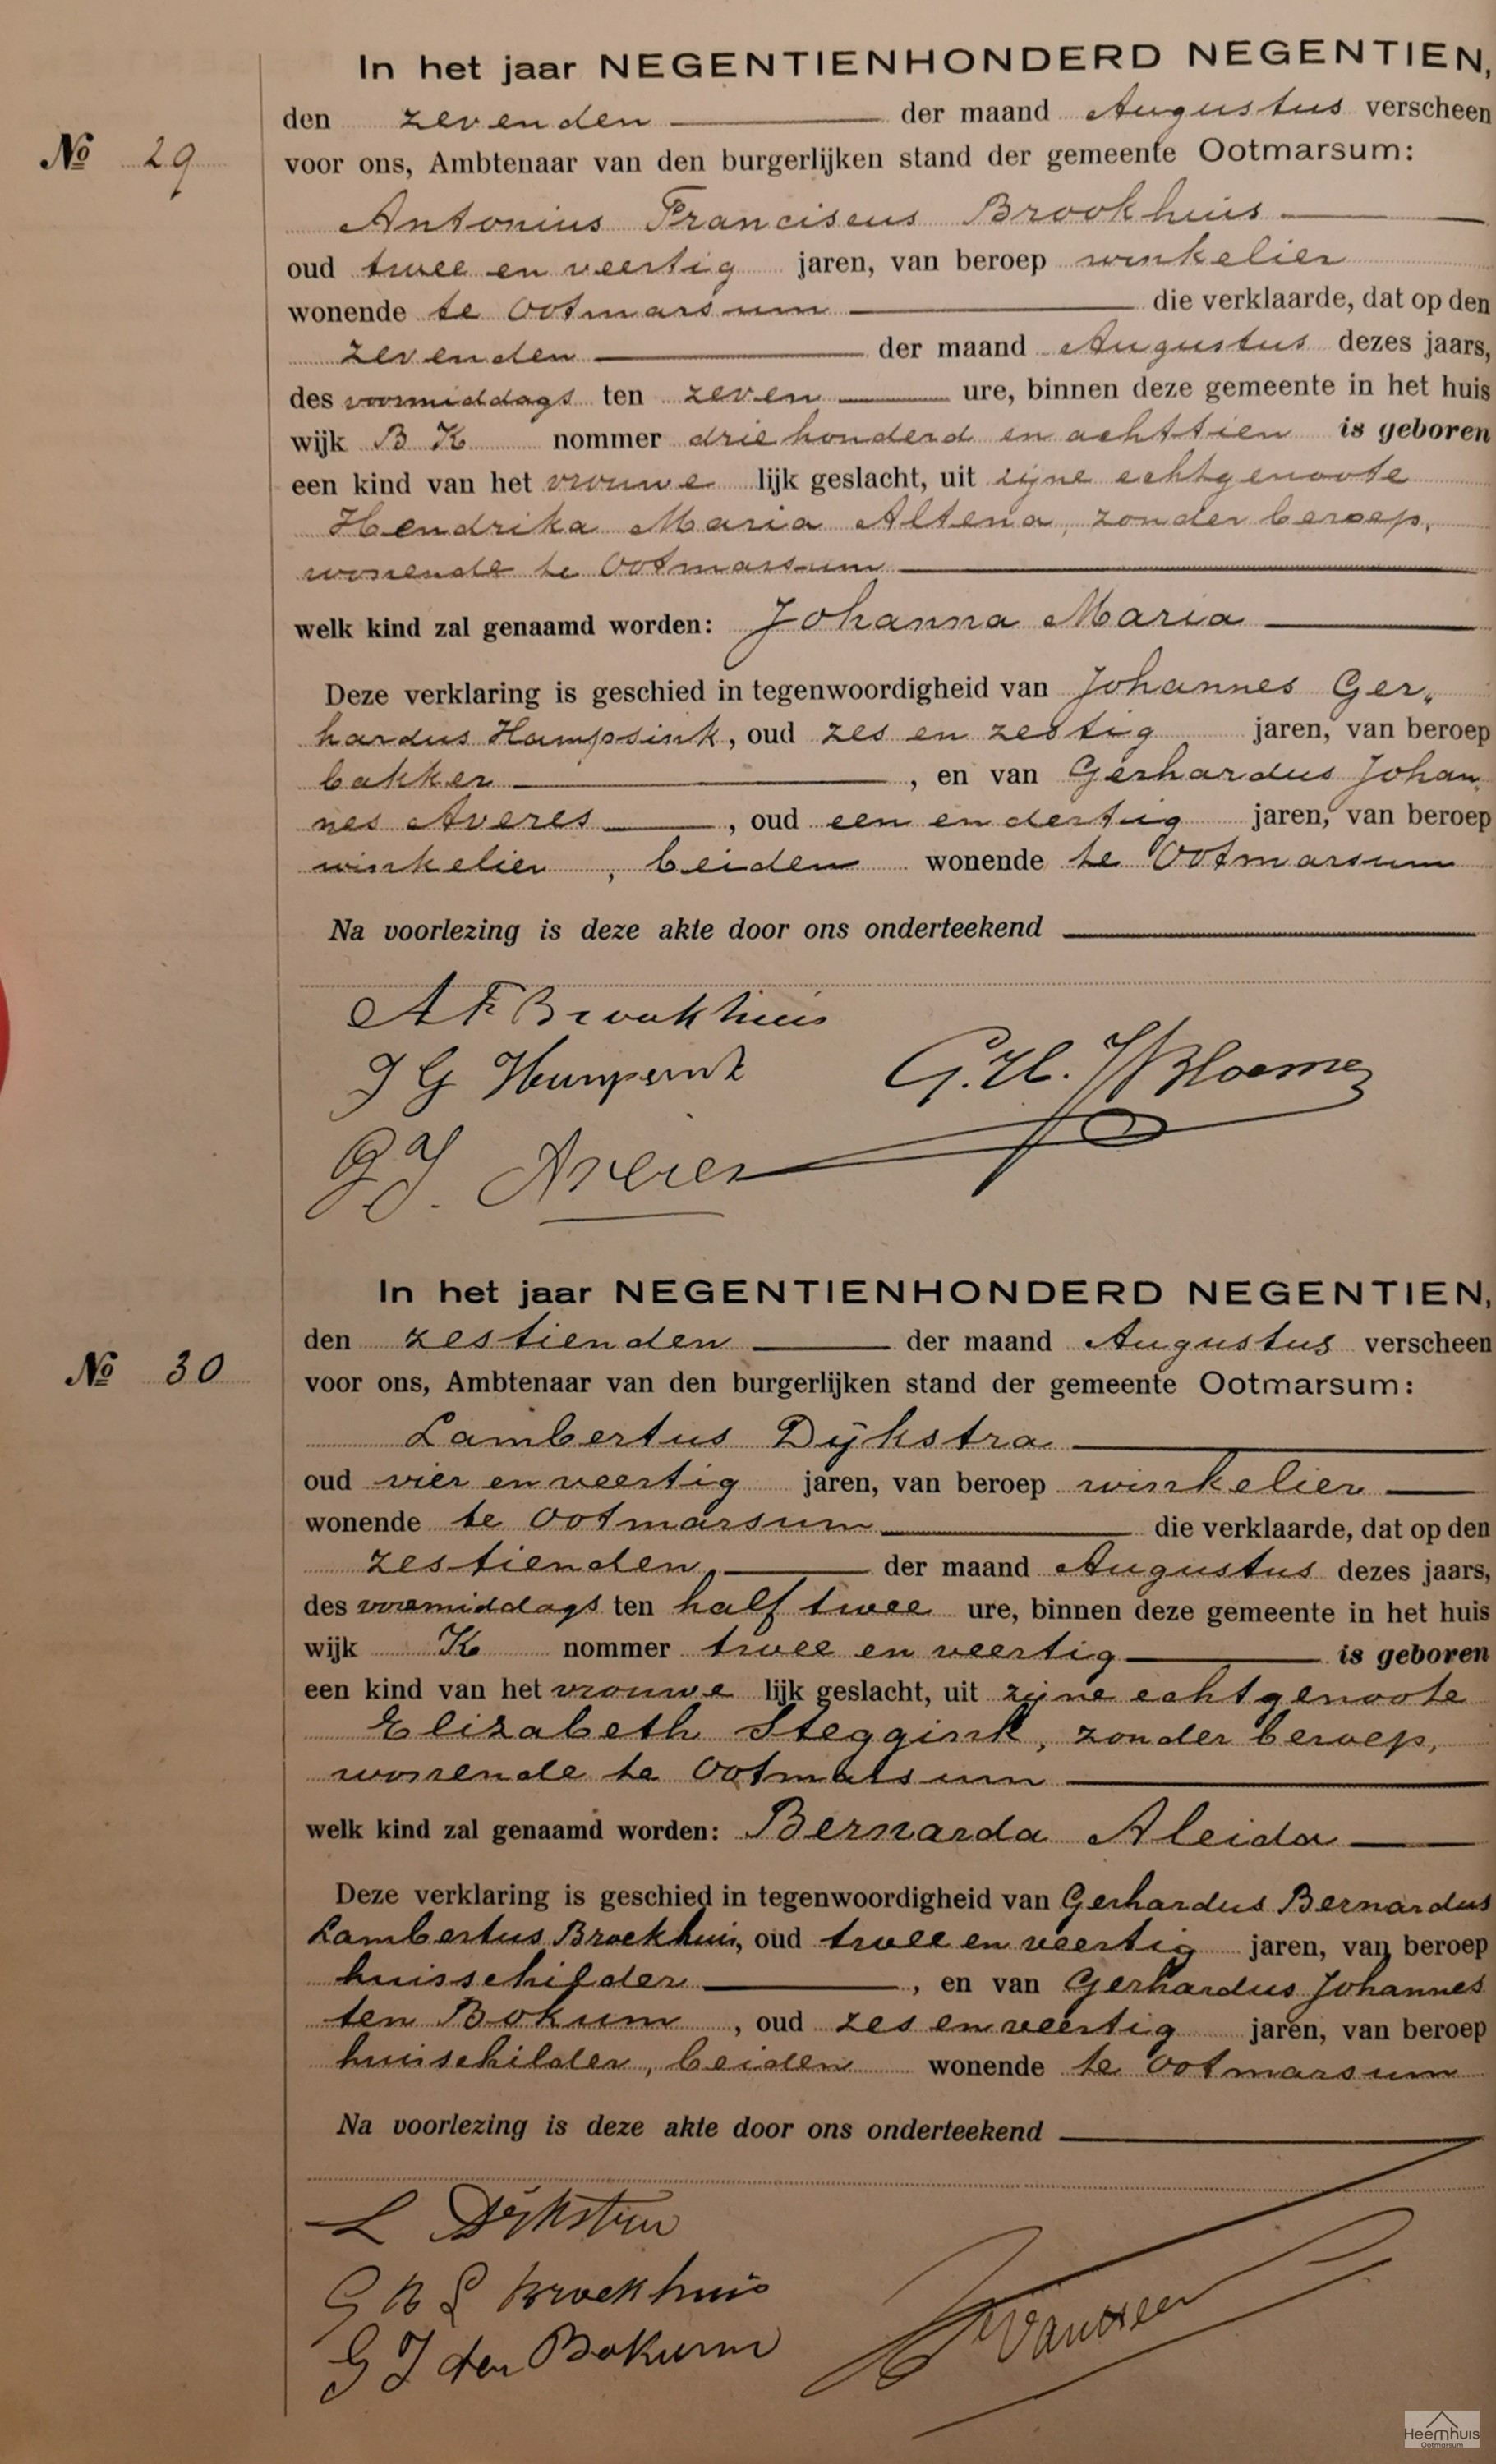 In het jaar NEGENTIENHONDERD NEGENTIEN,
den zevenden der maand Augustus verscheen
No 29
voor ons, Ambtenaar van den burgerlijken stand der gemeente Ootmarsum:
Antonius Franciscus Brookhuis
oud twee en veertig jaren, van beroep winkelier
wonende te Ootmarsum die verklaarde, dat op den
zevenden der maand Augustus dezes jaars,
des voormiddags ten zeven ure, binnen deze gemeente in het huis
wijk B K nommer driehonderd en achttien is geboren
een kind van het vrouwe lijk geslacht, uit zijne echtgenoote
Hendrika Maria Altena, zonder beroep,
wonende te Ootmarsum
welk kind zal genaamd worden: Johanna Maria
Deze verklaring is geschied in tegenwoordigheid van Johannes Ger„
hardus Hampsink, oud zes en zestig jaren, van beroep
bakker, en van Gerhardus Johan„
nes Averes, oud een en dertig jaren, van beroep
winkelier, beiden wonende te Ootmarsum
Na voorlezing is deze akte door ons onderteekend
A F Brookhuis
J G Hampsink G. H. Bloemen
G J. Averes
In het jaar NEGENTIENHONDERD NEGENTIEN,
den zestienden der maand Augustus verscheen
No 30
voor ons, Ambtenaar van den burgerlijken stand der gemeente Ootmarsum:
Lambertus Dijkstra
oud vier en veertig jaren, van beroep winkelier
wonende te Ootmarsum die verklaarde, dat op den
zestienden der maand Augustus dezes jaars,
des voormiddags ten half twee ure, binnen deze gemeente in het huis
wijk K nommer twee en veertig is geboren
een kind van het vrouwe lijk geslacht, uit zijne echtgenoote
Elizabeth Steggink, zonder beroep,
wonende te Ootmarsum
welk kind zal genaamd worden: Bernarda Aleida
Deze verklaring is geschied in tegenwoordigheid van Gerhardus Bernardus
Lambertus Broekhuis, oud twee en veertig jaren, van beroep
huisschilder, en van Gerhardus Johannes
ten Bokum, oud zes en veertig jaren, van beroep
huischilder, beiden wonende te Ootmarsum
Na voorlezing is deze akte door ons onderteekend
L Dijkstra
G B L Broekhuis
G J ten Bokum
Heemhuis
Ootmarsum